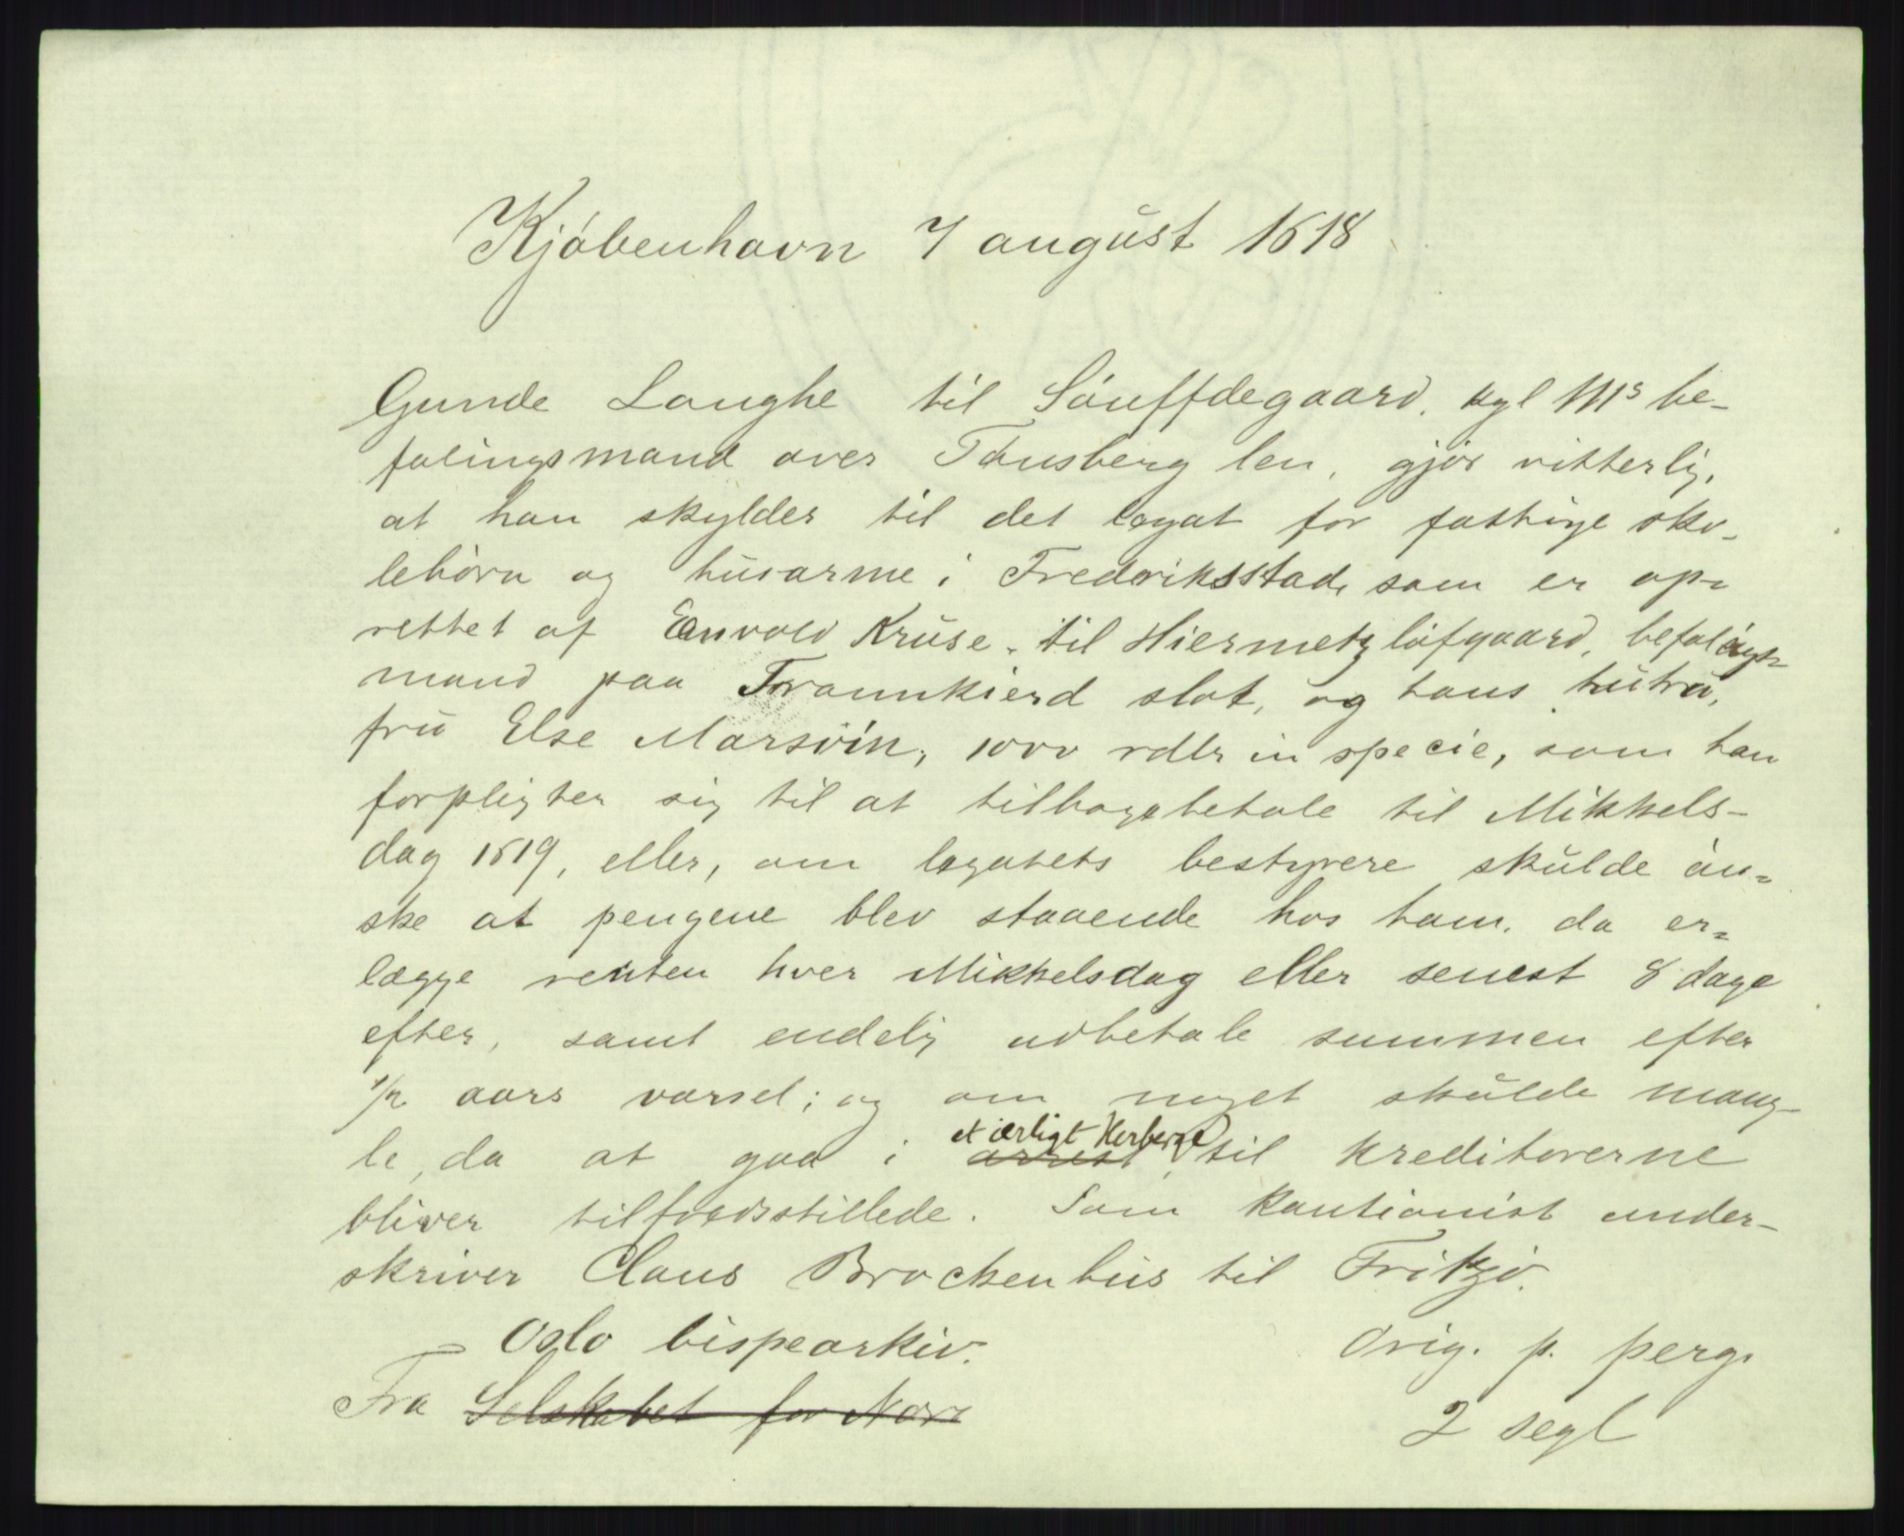 Kjøbenhavn 7 august 1618
Gunde Langhe til Søuffdegaard, kgl Ms be-
falingsmand over Tønsberg len, gjør vitterlig,
at han skylder til det legat for fattige sko-
lebørn og husarme i Fredriksstad, som er op-
rettet af Envold Kruse til Hiermetzløfgaard, befalings-
mand paa Trannkierd slot, og hans hustru,
fru Else Marsvin, 1000 rdlr in specie, som han
forpligter sig til at tilbagebetale til Mikkels-
dag 1619, eller, om legatets bestyrere skulde øn-
ske at pengene blev staaende hos ham, da er-
lægge renten hver Mikkelsdag eller senest 8 dage
efter, samt endelig udbetale summen efter
1/2 aars varsel; og om noget skulde mang-
le, da at gaa i arrest et ærligt Herberge, til kreditorerne
bliver tilfredsstillede. Som kautionist under-
skriver Claus Brockenhus til
Oslo bispearkiv. Orig. p. perg.
Fra Selskabet for Nor 2 segl